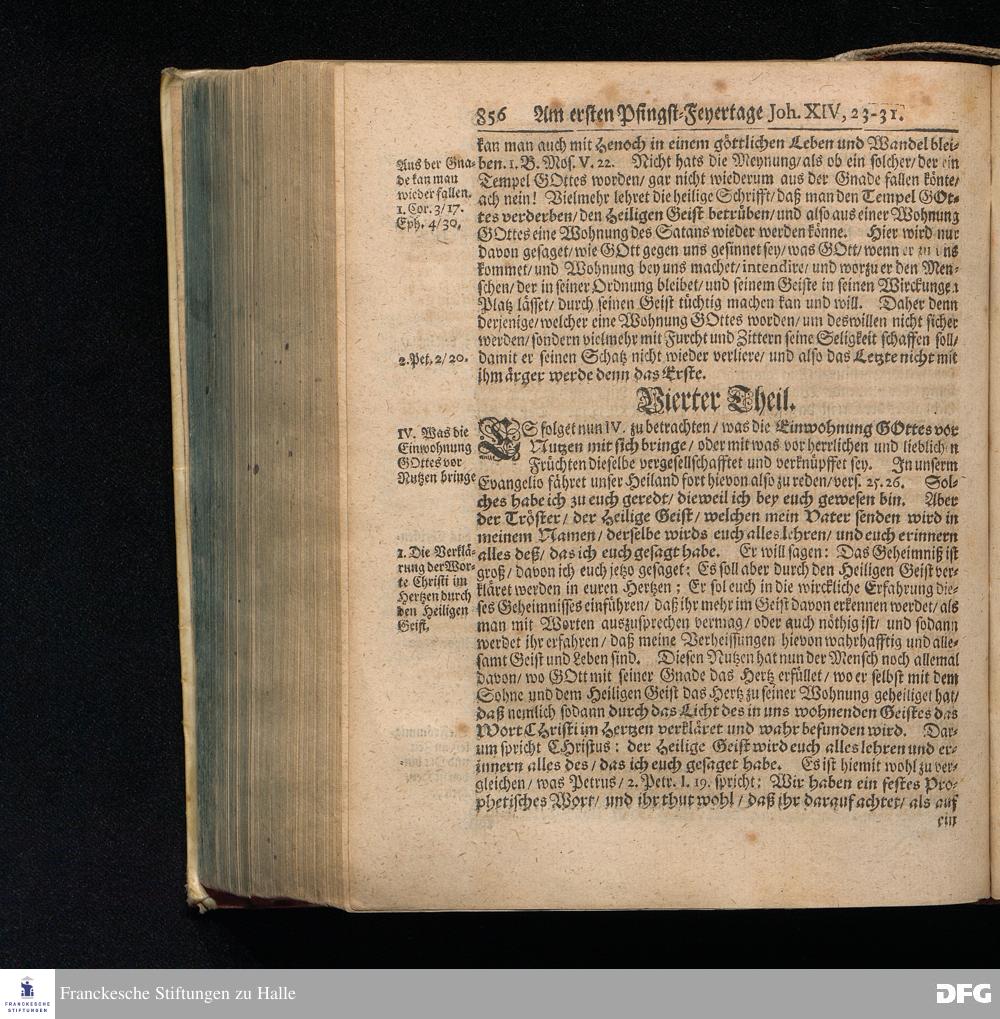 856 Am ersten Pfingst-Feyertage Joh. XIV, 23-31.
kan man auch mit Henoch in einem göttlichen Leben und Wandel blei-
ben. 1. B. Mos. V. 22. Nicht hats die Meynung/ als ob ein solcher/ der ein
Tempel GOttes worden/ gar nicht wiederum aus der Gnade fallen könte/
ach nein! Vielmehr lehret die heilige Schrifft/ daß man den Tempel GOt-
tes verderben/ den Heiligen Geist betrüben/ und also aus einer Wohnung
GOttes eine Wohnung des Satans wieder werden könne. Hier wird nur
davon gesaget/ wie GOtt gegen uns gesinnet sey/ was GOtt/ wenn er zu uns
kommet/ und Wohnung bey uns machet/ intendire/ und worzu er den Men-
schen/ der in seiner Ordnung bleibet/ und seinem Geiste in seinen Wirckungen
Platz lässet/ durch seinen Geist tüchtig machen kan und will. Daher denn
derjenige/ welcher eine Wohnung GOttes worden/ um deswillen nicht sicher
werden/ sondern vielmehr mit Furcht und Zittern seine Seligkeit schaffen soll/
damit er seinen Schatz nicht wieder verliere/ und also das Letzte nicht mit
ihm ärger werde denn das Erste.
Aus der Gna-
de kan man
wieder fallen.
1. Cor. 3/17.
Eph. 4/30.
2. Pet. 2/20.
Vierter Theil.
ES folget nun IV. zu betrachten/ was die Einwohnung GOttes vor
Nutzen mit sich bringe/ oder mit was vor herrlichen und lieblichen
Früchten dieselbe vergesellschafftet und verknüpffet sey. In unserm
Evangelio fähret unser Heiland fort hievon also zu reden/ vers. 25. 26. Sol-
ches habe ich zu euch geredt/ dieweil ich bey euch gewesen bin. Aber
der Tröster/ der Heilige Geist/ welchen mein Vater senden wird in
meinem Namen/ derselbe wirds euch alles lehren/ und euch erinnern
alles deß/ das ich euch gesagt habe. Er will sagen: Das Geheimniß ist
groß/ davon ich euch jetzo gesaget: Es soll aber durch den Heiligen Geist ver-
kläret werden in euren Hertzen; Er sol euch in die wirckliche Erfahrung die-
ses Geheimnisses einführen/ daß ihr mehr im Geist davon erkennen werdet/ als
man mit Worten auszusprechen vermag/ oder auch nöthig ist/ und sodann
werdet ihr erfahren/ daß meine Verheissungen hievon wahrhafftig und alle-
samt Geist und Leben sind. Diesen Nutzen hat nun der Mensch noch allemal
davon/ wo GOtt mit seiner Gnade das Hertz erfüllet/ wo er selbst mit dem
Sohne und dem Heiligen Geist das Hertz zu seiner Wohnung geheiliget hat/
daß nemlich sodann durch das Licht des in uns wohnenden Geistes das
Wort CHristi im Hertzen verkläret und wahr befunden wird. Dar-
um spricht CHristus: der Heilige Geist wird euch alles lehren und er-
innern alles des/ das ich euch gesaget habe. Es ist hiemit wohl zu ver-
gleichen/ was Petrus/ 2. Petr. I. 19. spricht: Wir haben ein festes Pro-
phetisches Wort/ und ihr thut wohl/ daß ihr darauf achtet/ als auf
ein
IV. Was die
Einwohnung
GOttes vor
Nutzen bringe
1. Die Verklä-
rung der Wor-
te Christi im
Hertzen durch
den Heiligen
Geist,
FRANCKESCHE
STIFTUNGEN
Franckesche Stiftungen zu Halle
DFG